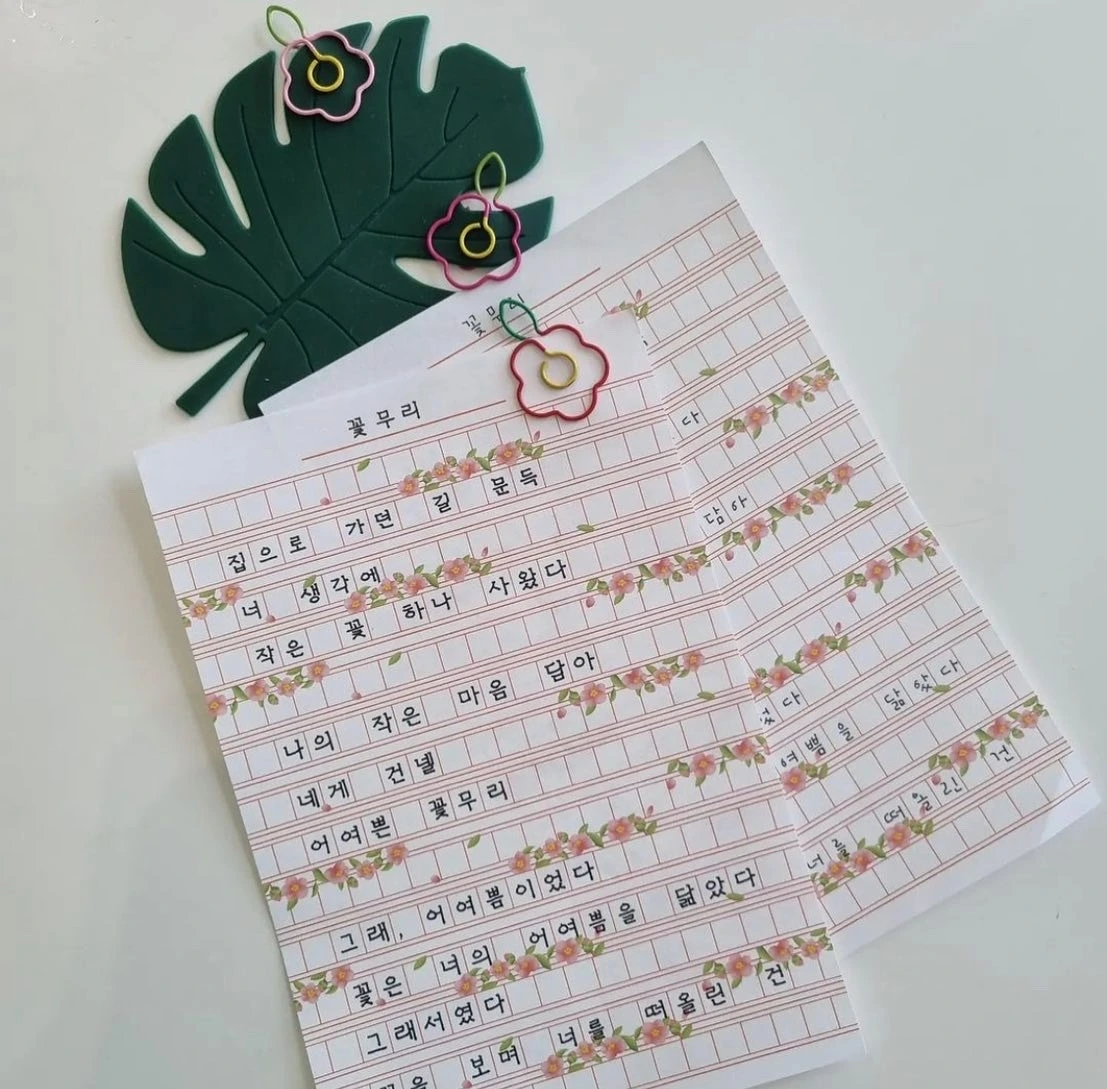 꽃무리
집으로 가던 길 문득
너 생각에
작은 꽃 하나 사왔다
나의 작은 마음 담아
네게 건넬
어여쁜 꽃무리
그래, 어여쁨이었다
꽃은 너의 어여쁨을 닮았다
그래서였다
꽃을 보며 너를 떠올린 건
꽃무리
다
담아
었다
여쁨을 닮았다
너를 떠올린 건